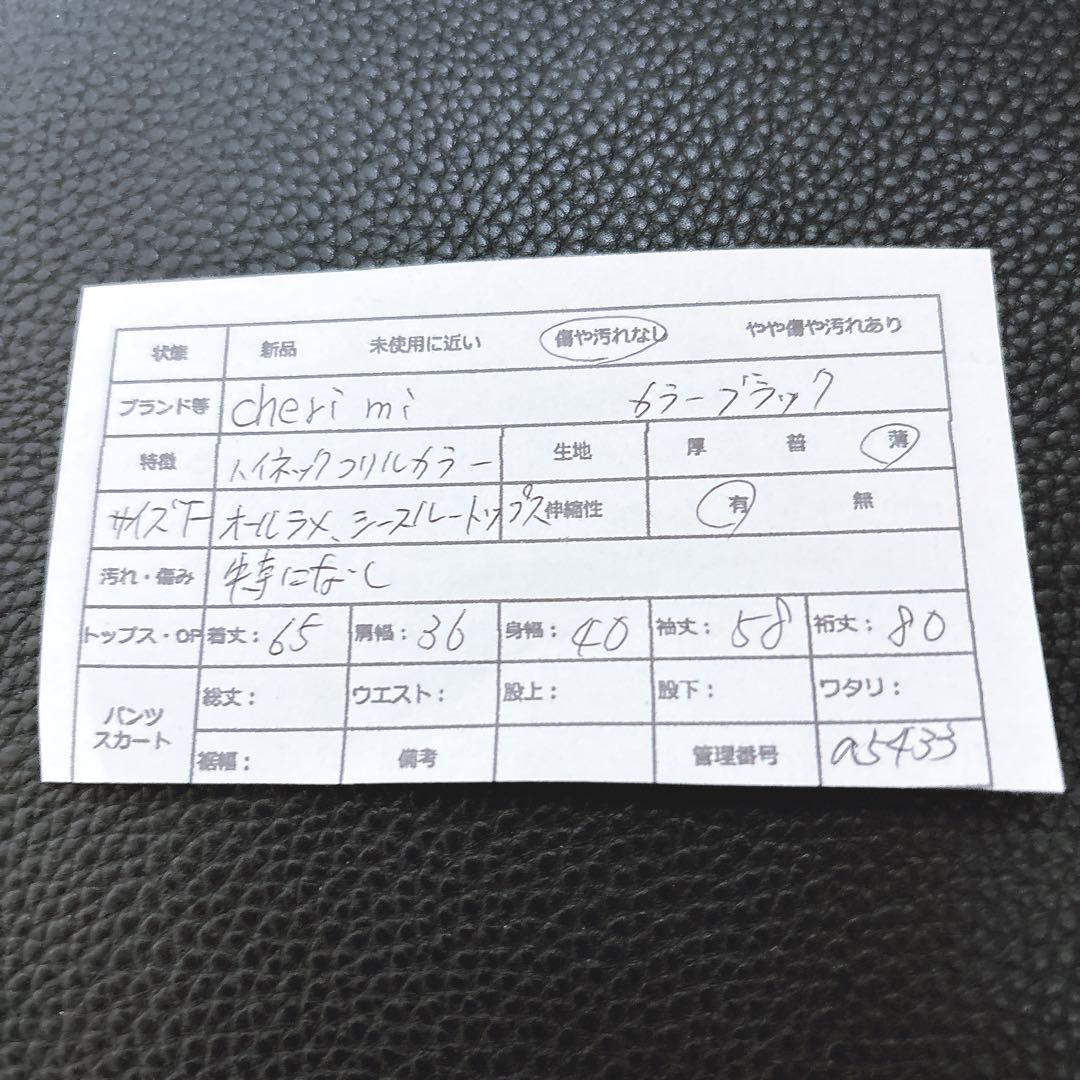 状態 新品 未使用に近い 傷や汚れなし やや傷や汚れあり
ブランド等 cheri mi カラーブラック
特徴 ハイネックフリルカラー 生地 厚 普 薄
サイズF オールラメ、シースルートップス 伸縮性 有 無
汚れ・傷み 特になし
トップス・OP 着丈: 65 肩幅: 36 身幅: 40 袖丈: 58 裄丈: 80
パンツ スカート 総丈: ウエスト: 股上: 股下: ワタリ:
裾幅: 備考 管理番号 a5433